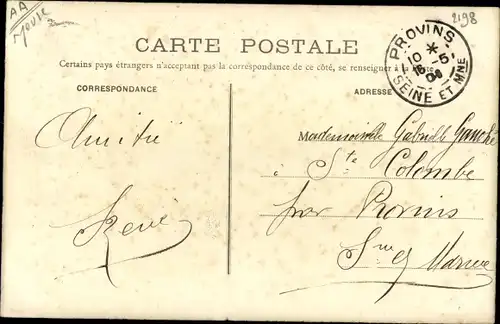 AA
Meuse
2198
CARTE POSTALE
Certains pays étrangers n'acceptant pas la correspondance de ce côté, se renseigner à la
PROVINS
10 *
16-5
06
SEINE ET MNE
CORRESPONDANCE
ADRESSE
Amitié
René
Mademoiselle Gabrielle Gauché
à Ste Colombe
par Provins
Sne et Marne